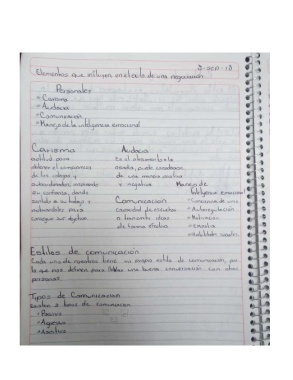 Elementos que influyen en el exito de una negociación.
Personales
- Carisma
- Audacia
- Comunicación
- Manejo de la inteligencia emocional
Carisma
aptitud para
de los colegas y
su confianza, dando
sentido a su trabajo y
conseguir sus objetivos
Audacia
Es el atrevimiento o la
osadía, puede considerarse
de una manera positiva
o negativa
Comunicación
capacidad de escuchar
y transmitir ideas
de forma efectiva
Manejo de
inteligencia emocional
- Autorregulación
- Motivación
- Empatía
- Habilidades sociales
Estilos de comunicación
Cada uno de nosotros tiene un propio estilo de comunicación, por
lo que nos definen para llevar una buena conversación con otras
personas.
Tipos de Comunicación
Existen 3 tipos de comunicación
- Pasivo
- Agresivo
- Asertivo